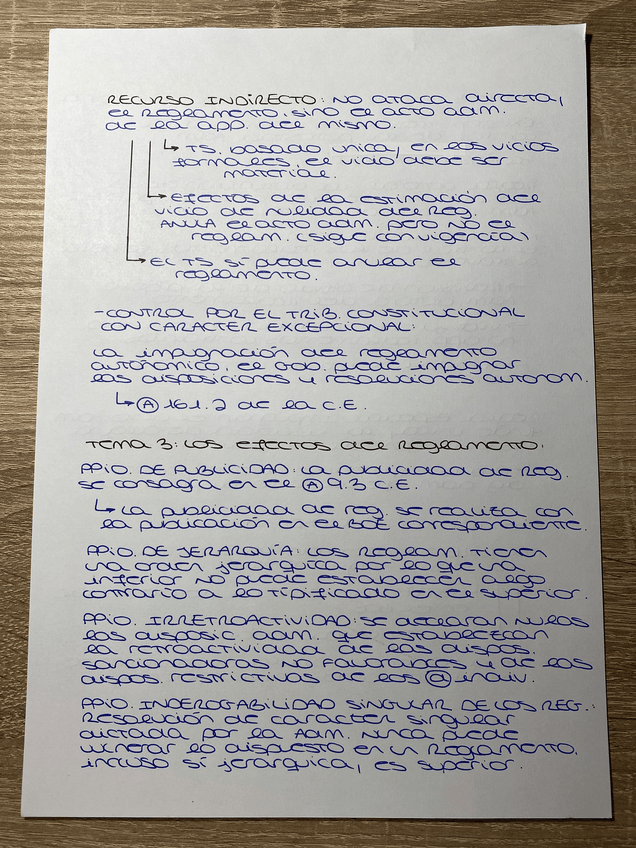 RECURSO INDIRECTO: NO ATACA DIRECTA,
EL REGLAMENTO, SINO EL ACTO ADM.
DE LA APP. DEL MISMO.
↳ TS. BASADO UNICA, EN LOS VICIOS
FORMALES, EL VICIO DEBE SER
MATERIAL.
EFECTOS DE LA ESTIMACIÓN DEL
VICIO DE NULIDAD DEL REG.
ANULA EL ACTO ADM. PERO NO EL
REGLAM. (SIGUE CON VIGENCIA)
EL TS SÍ PUEDE ANULAR EL
REGLAMENTO.
-CONTROL POR EL TRIB. CONSTITUCIONAL
CON CARACTER EXCEPCIONAL:
LA IMPUGNACIÓN DEL REGLAMENTO
AUTONÓMICO. EL GOB. PUEDE IMPUGNAR
LAS DISPOSICIONES Y RESOLUCIONES AUTONOM.
↳ Ⓐ 161.2 DE LA C.E.
TEMA 3: LOS EFECTOS DEL REGLAMENTO.
PPIO. DE PUBLICIDAD: LA PUBLICIDAD DE REG.
SE CONSAGRA EN EL Ⓐ 9.3 C.E.
↳ LA PUBLICIDAD DE REG. SE REALIZA CON
LA PUBLICACIÓN EN EL BOE CORRESPONDIENTE.
PPIO. DE JERARQUÍA: LOS REGLAM. TIENEN
UNA ORDEN JERARQUICA POR LO QUE UNA
INFERIOR NO PUEDE ESTABLECER ALGO
CONTRARIO A LO TIPIFICADO EN EL SUPERIOR.
PPIO. IRRETROACTIVIDAD: SE DECLARAN NULAS
LAS DISPOSIC. ADM. QUE ESTABLEZCAN
LA RETROACTIVIDAD DE LAS DISPOS.
SANCIONADORAS NO FAVORABLES Y DE LAS
DISPOS. RESTRICTIVAS DE LOS ⓓ INDIV.
PPIO. INDEROGABILIDAD SINGULAR DE LOS REG.:
RESOLUCIÓN DE CARACTER SINGULAR
DICTADA POR LA ADM. NUNCA PUEDE
VULNERAR LO DISPUESTO EN UN REGLAMENTO,
INCLUSO SÍ JERARQUICA, ES SUPERIOR.